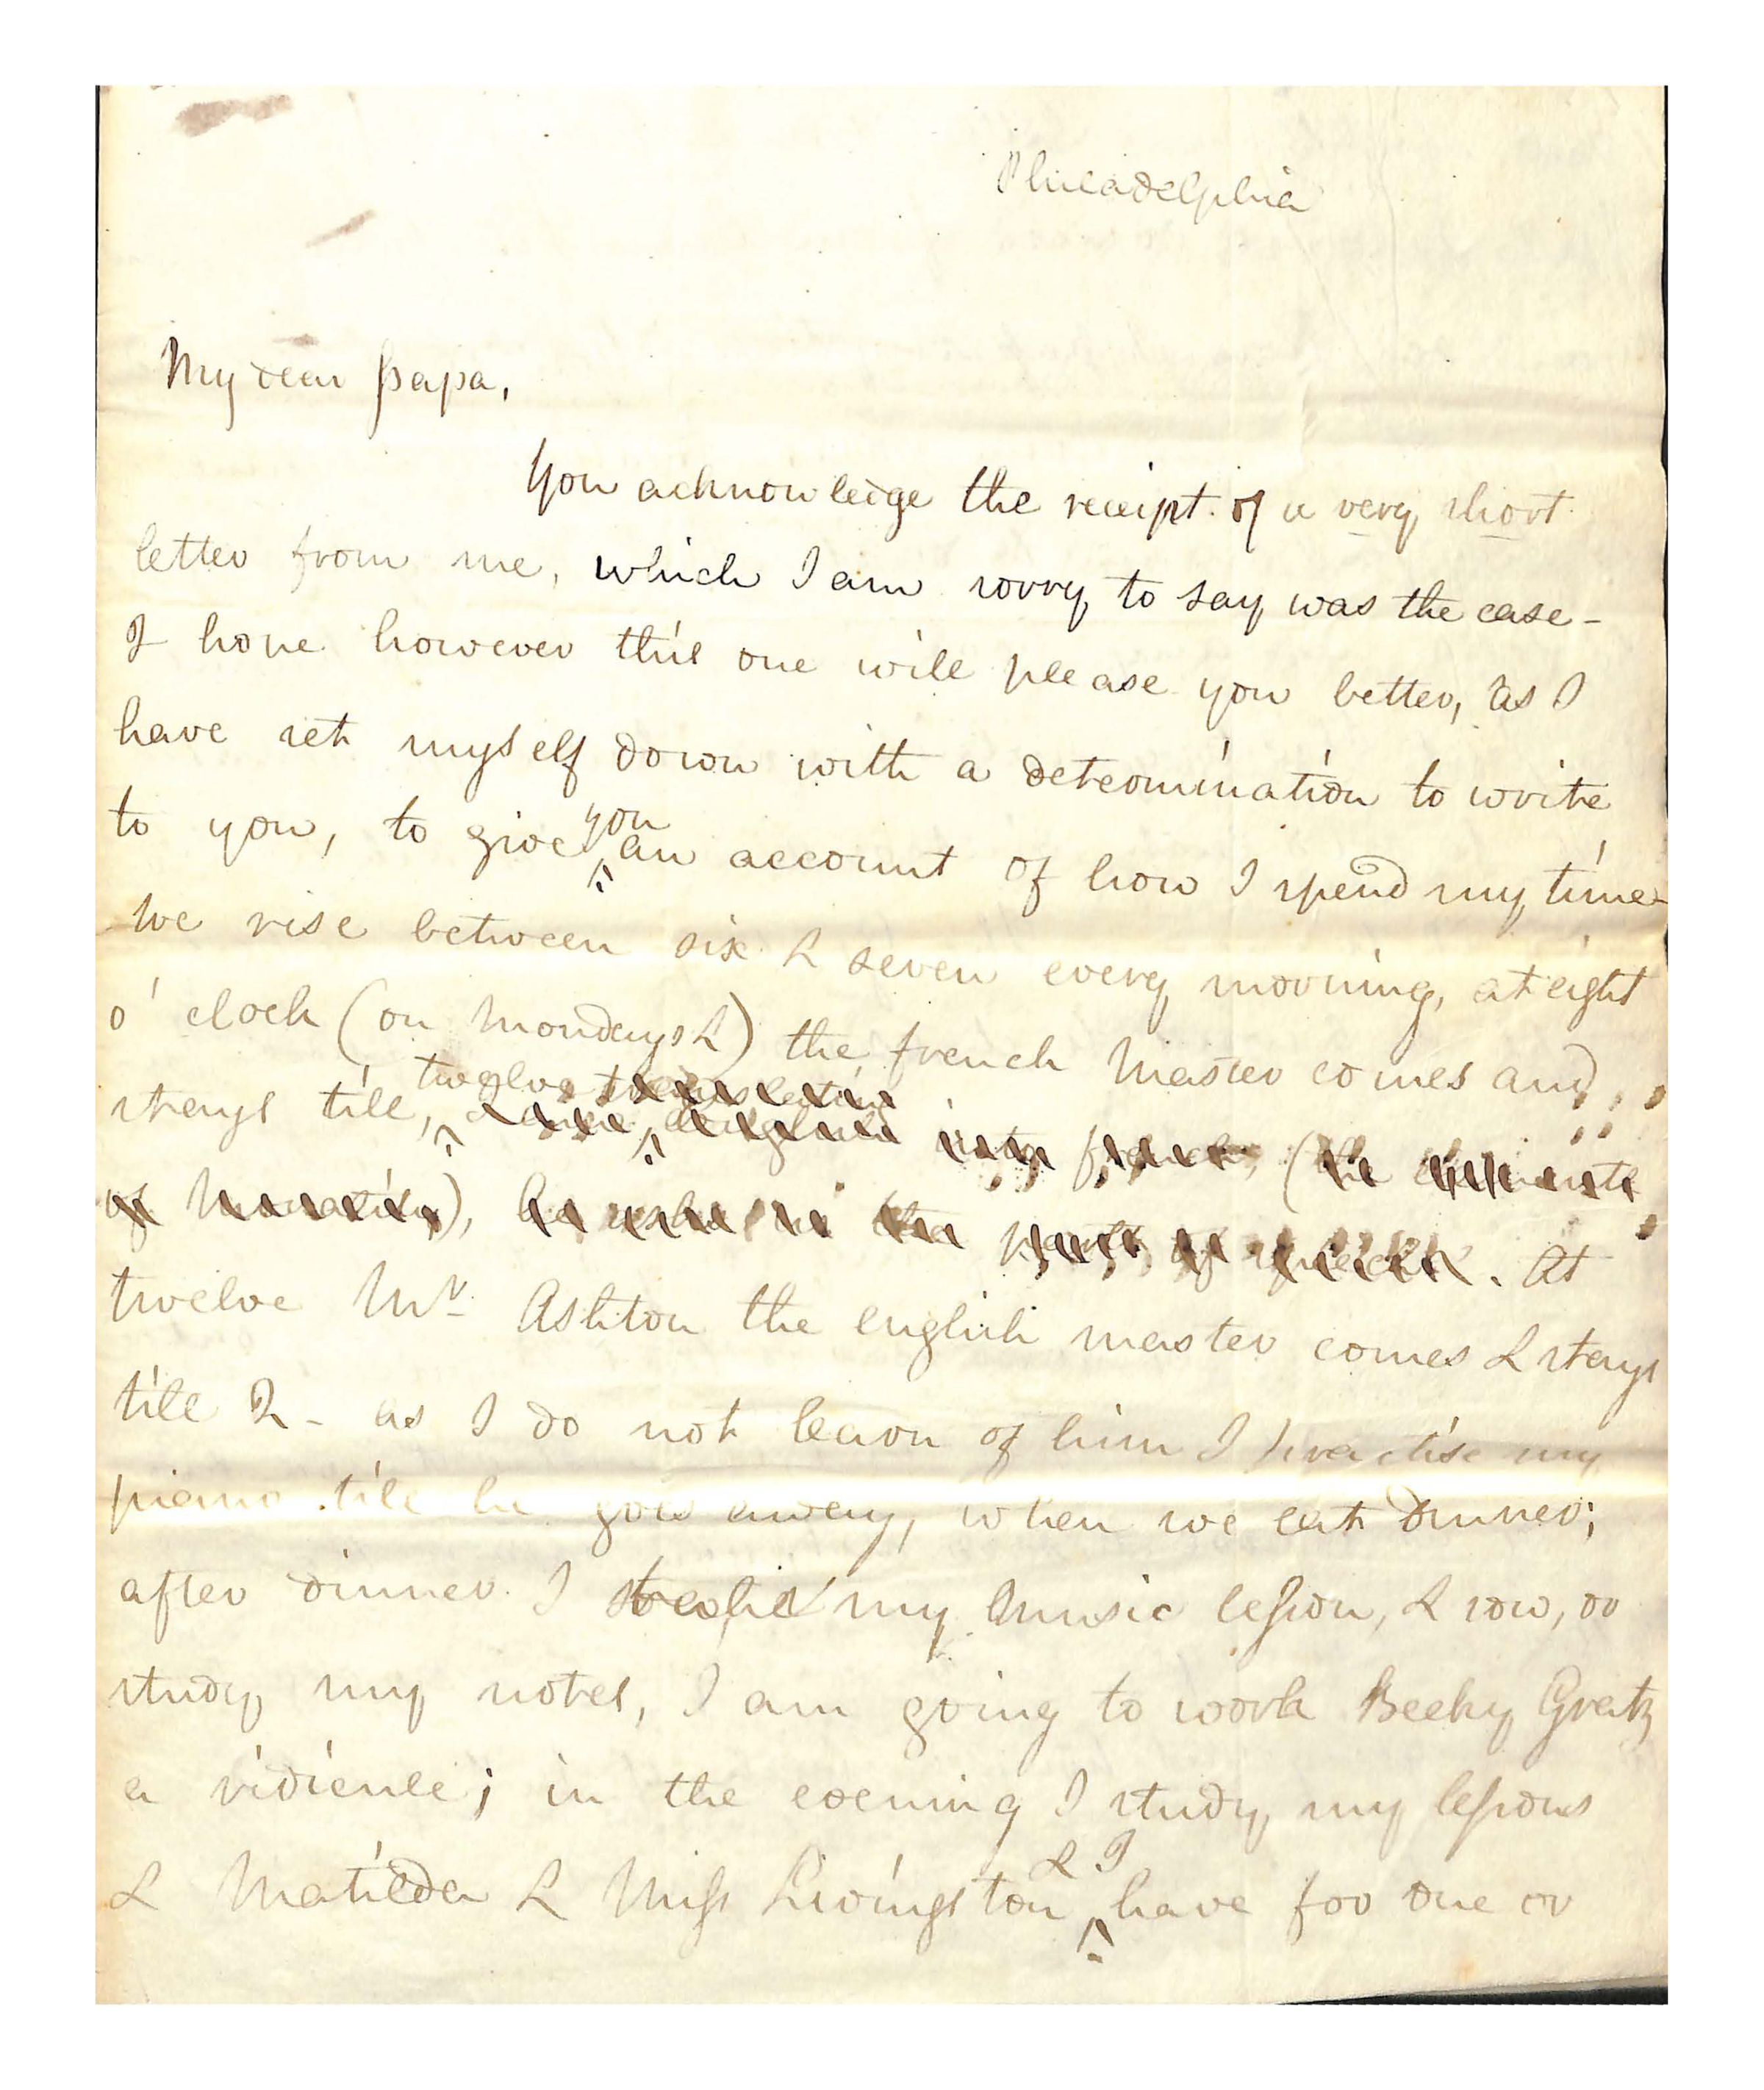 Philadelphia
My dear papa,
You acknowledge the receipt of a very short
letter from me, which I am sorry to say was the case -
I hope however this one will please you better, as I
have set myself down with a determination to write
to you, to give you an account of how I spend my time
We rise between six & seven every morning, at eight
o' clock (on Mondays &) the french Master comes and
stays till, twelve translating english into french, (the
of), he in the parts of speech. At
twelve Mr. Ashton the english master comes & stays
till 2 - as I do not learn of him I practise my
piano till he goes away, when we eat dinner;
after dinner I my Music lesson, & sow, or
study my notes, I am going to work Becky Gratz
a ridicule; in the evening I study my lessons
& Matilda & Miss Livingston & I have for one or